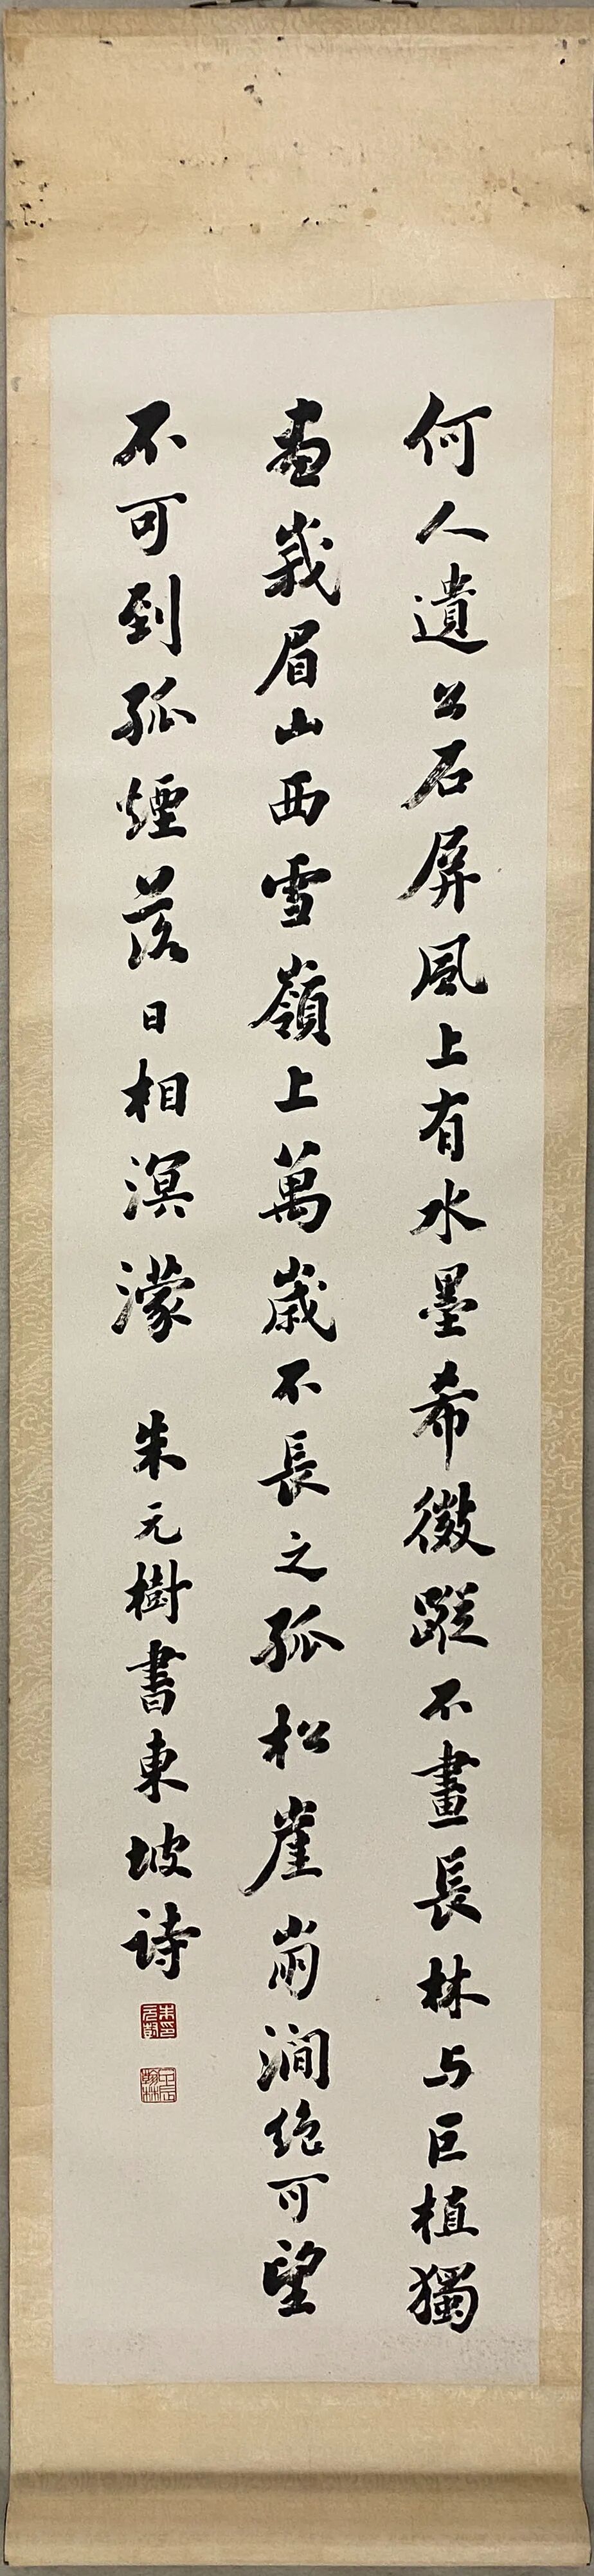 何人遺公石屏風上有水墨希微蹤不畫長林与巨植獨
畫峩眉山西雪嶺上萬歲不長之孤松崖崩澗絕可望
不可到孤煙落日相溟濛 朱元樹書東坡詩
朱元樹印
壬辰翰林